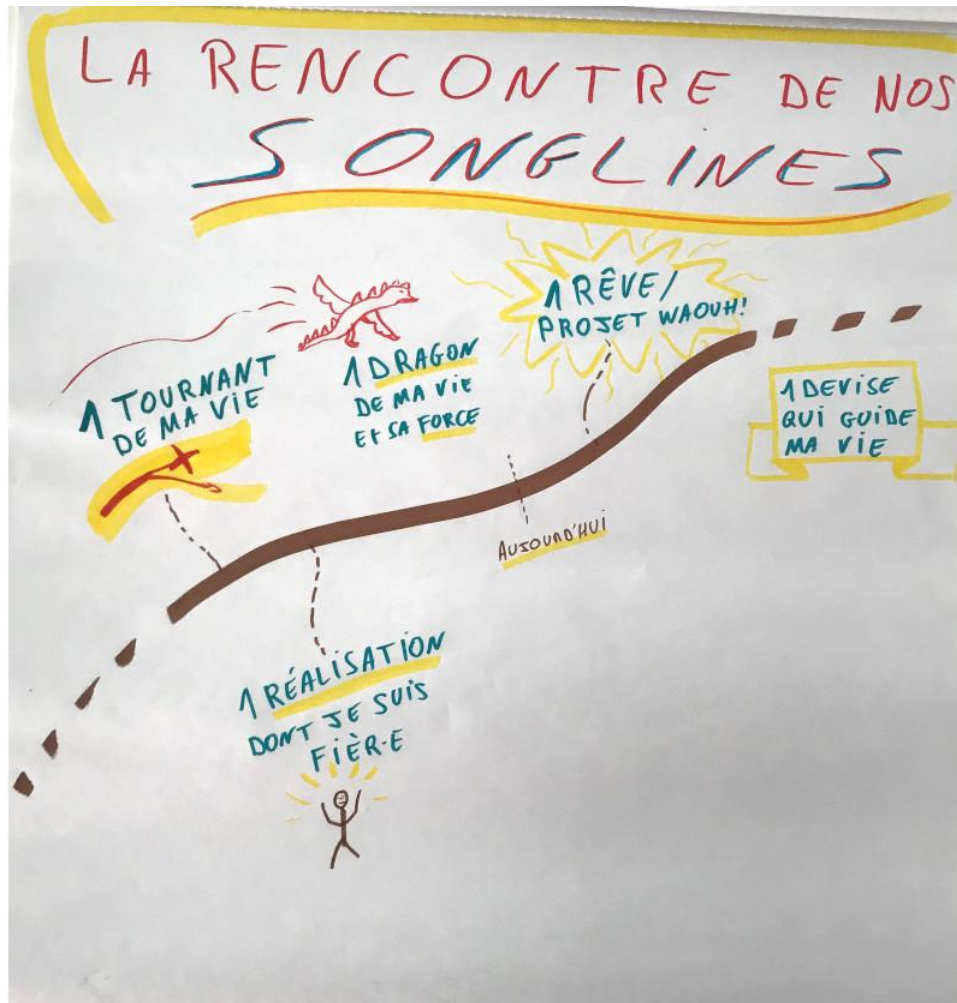 LA RENCONTRE DE NOS
SONGLINES
1 TOURNANT
DE MA VIE
1 DRAGON
DE MA VIE
Et SA FORCE
1 RÊVE/
PROJET WAOUH!
1 DEVISE
QUI GUIDE
MA VIE
AUJOURD'HUI
1 RÉALISATION
DONT JE SUIS
FIÈR·E